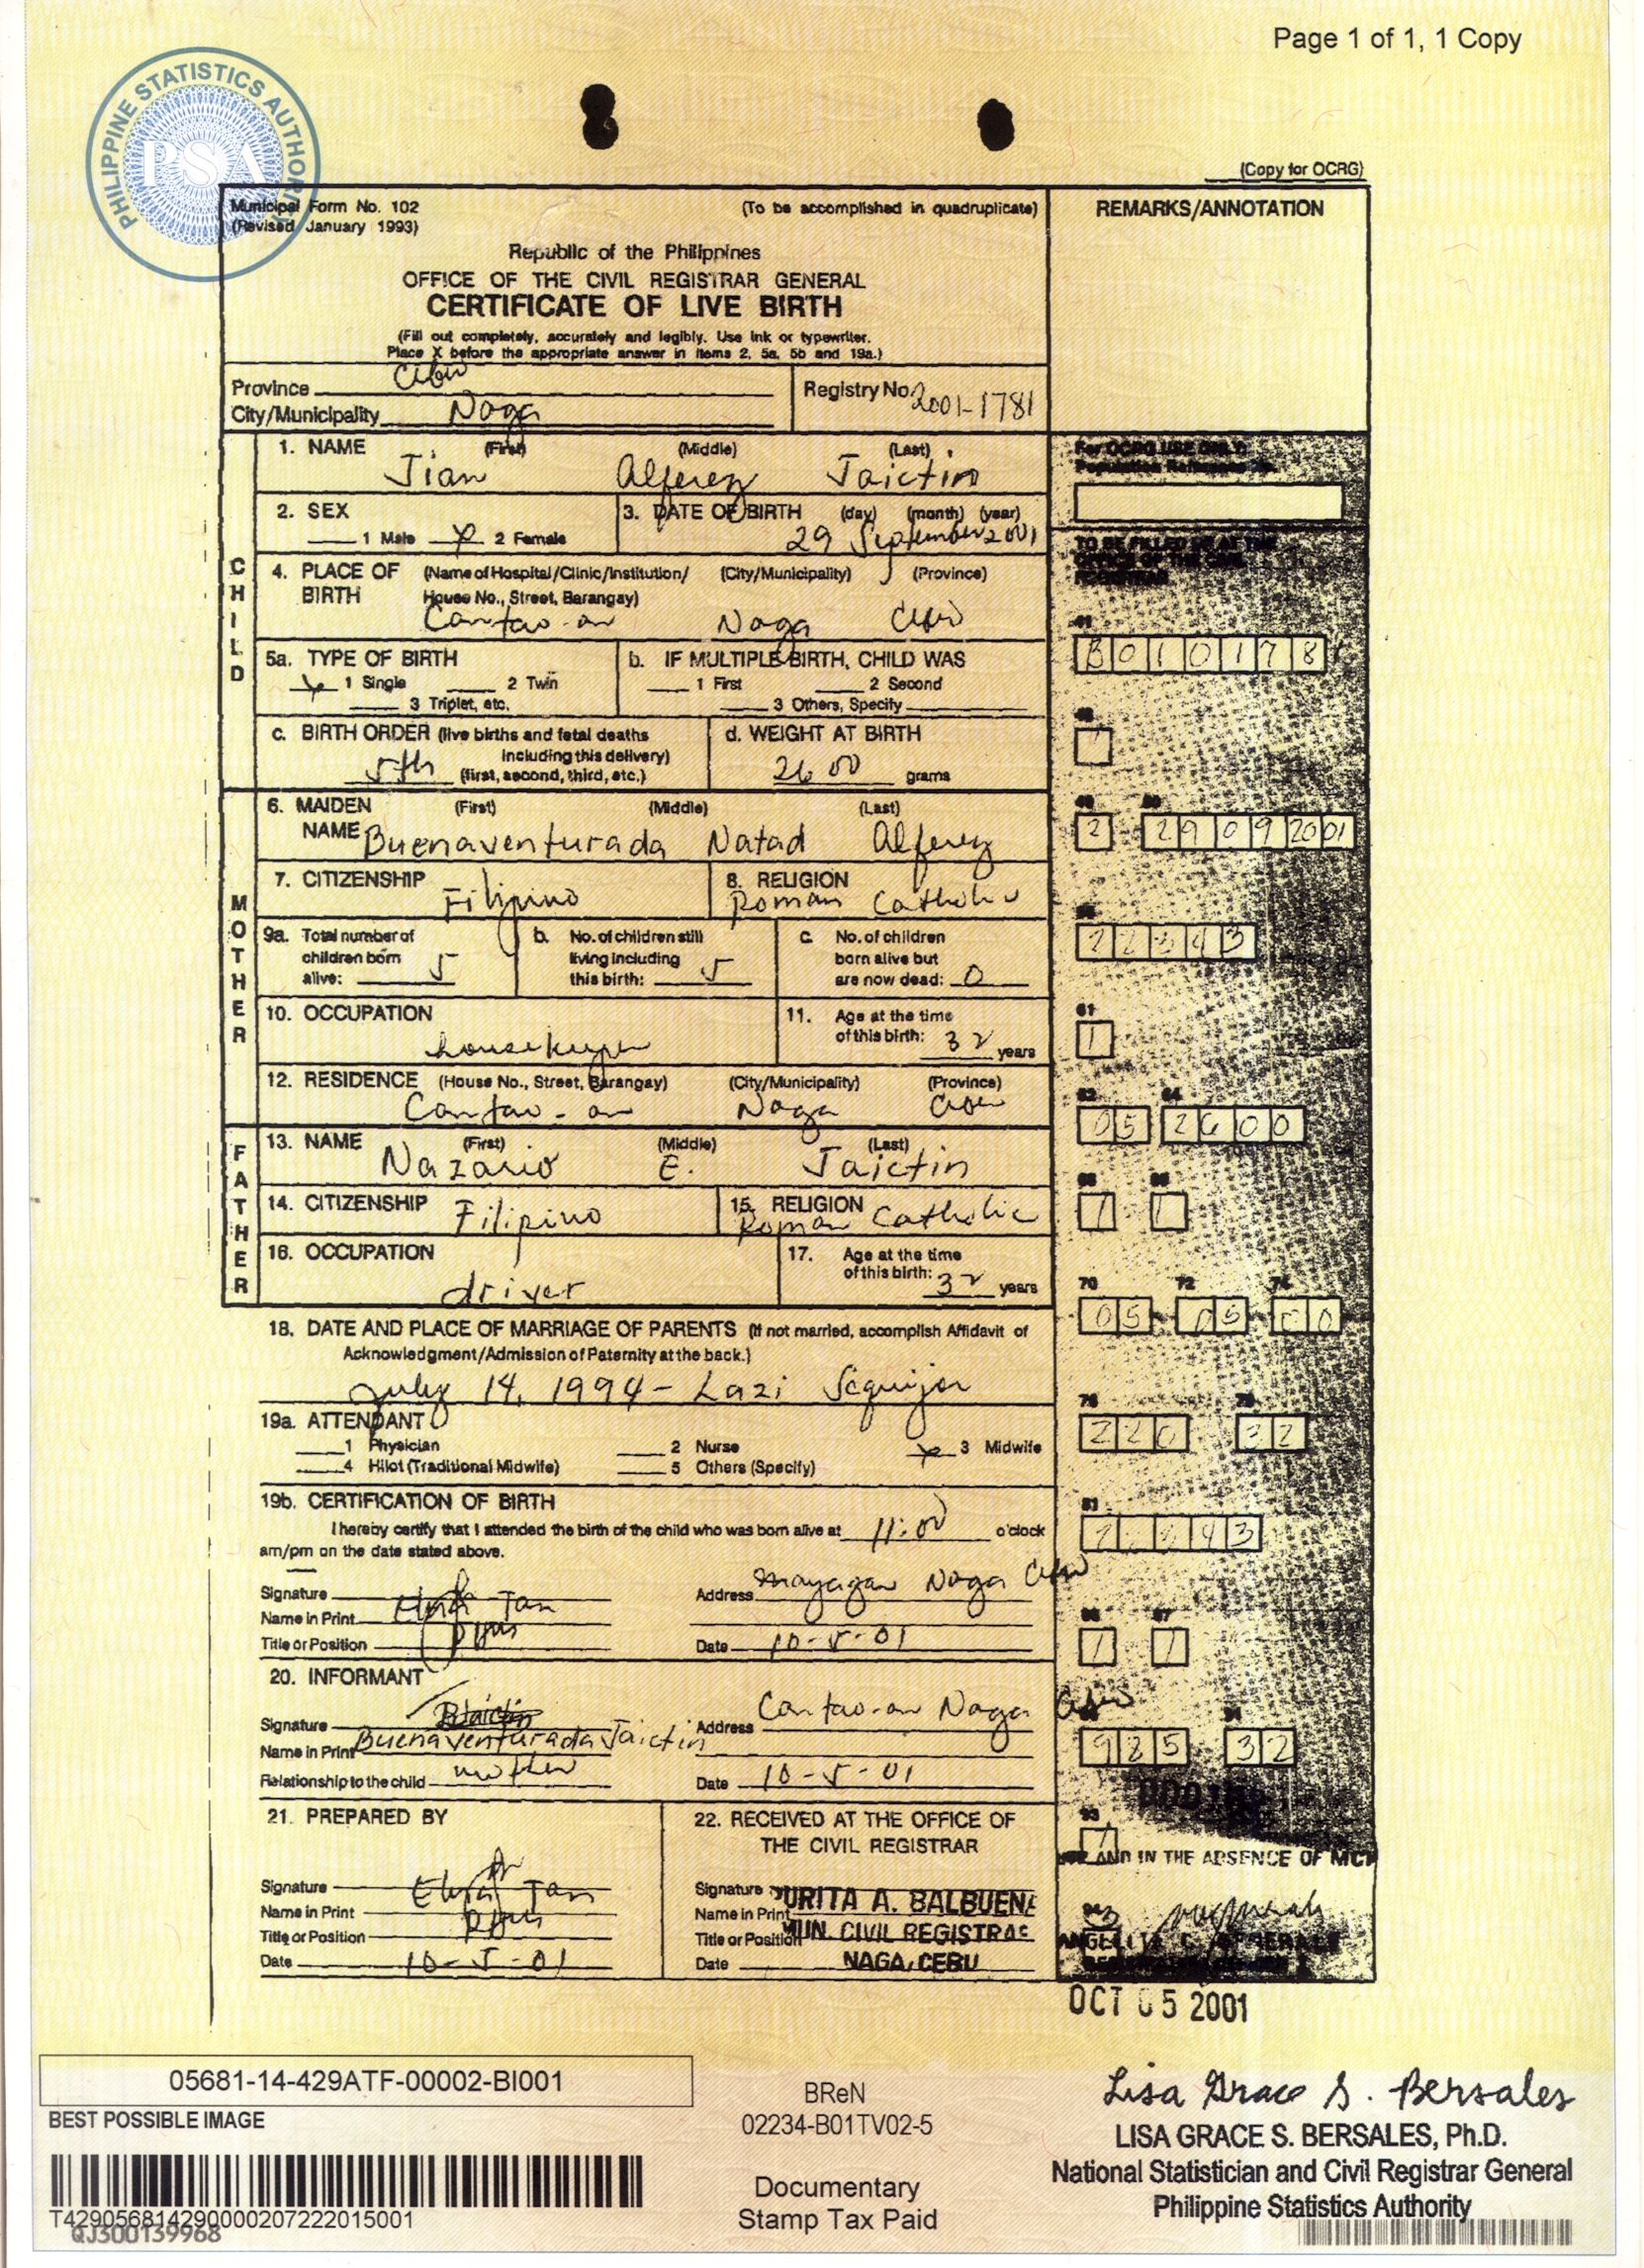 Page 1 of 1, 1 Copy
PHILIPPINE STATISTICS AUTHORITY
PSA
(Copy for OCRG)
Municipal Form No. 102
(Revised January 1993)
(To be accomplished in quadruplicate)
REMARKS/ANNOTATION
Republic of the Philippines
OFFICE OF THE CIVIL REGISTRAR GENERAL
CERTIFICATE OF LIVE BIRTH
(Fill out completely, accurately and legibly. Use ink or typewriter.
Place X before the appropriate answer in items 2, 5a, 5b and 19a.)
Province Cebu
City/Municipality Naga
Registry No. 2001-1781
CHILD
1. NAME (First) (Middle) (Last)
Jian Alferez Jaictin
2. SEX
1 Male X 2 Female
3. DATE OF BIRTH (day) (month) (year)
29 September 2001
4. PLACE OF BIRTH (Name of Hospital/Clinic/Institution/ House No., Street, Barangay) (City/Municipality) (Province)
Cantao-an Naga Cebu
5a. TYPE OF BIRTH
X 1 Single 2 Twin
3 Triplet, etc.
b. IF MULTIPLE BIRTH, CHILD WAS
1 First 2 Second
3 Others, Specify
c. BIRTH ORDER (live births and fetal deaths
including this delivery)
5th (first, second, third, etc.)
d. WEIGHT AT BIRTH
2600 grams
MOTHER
6. MAIDEN NAME (First) (Middle) (Last)
Buenaventurada Natad Alferez
7. CITIZENSHIP
Filipino
8. RELIGION
Roman Catholic
9a. Total number of children born alive: 5
b. No. of children still living including this birth: 5
c. No. of children born alive but are now dead: 0
10. OCCUPATION
housekeeper
11. Age at the time of this birth: 32 years
12. RESIDENCE (House No., Street, Barangay) (City/Municipality) (Province)
Cantao-an Naga Cebu
FATHER
13. NAME (First) (Middle) (Last)
Nazario E. Jaictin
14. CITIZENSHIP Filipino
15. RELIGION
Roman Catholic
16. OCCUPATION
driver
17. Age at the time of this birth: 32 years
18. DATE AND PLACE OF MARRIAGE OF PARENTS (If not married, accomplish Affidavit of
Acknowledgment/Admission of Paternity at the back.)
July 14, 1994 - Lazi Sequijor
19a. ATTENDANT
1 Physician 2 Nurse X 3 Midwife
4 Hilot (Traditional Midwife) 5 Others (Specify)
19b. CERTIFICATION OF BIRTH
I hereby certify that I attended the birth of the child who was born alive at 11:00 o'clock
am/pm on the date stated above.
Signature
Name in Print Tan
Title or Position
Address Naga Cebu
Date 10-5-01
20. INFORMANT
Signature BJaictin
Name in Print Buenaventurada Jaictin
Relationship to the child mother
Address Cantao-an Naga Cebu
Date 10-5-01
21. PREPARED BY
Signature Tan
Name in Print
Title or Position
Date 10-5-01
22. RECEIVED AT THE OFFICE OF
THE CIVIL REGISTRAR
Signature
Name in Print URITA A. BALBUENA
Title or Position MUN. CIVIL REGISTRAR
Date NAGA, CEBU
For OCRG USE ONLY
Population Reference No.
TO BE FILLED UP AT THE
OFFICE OF THE CIVIL
REGISTRAR
2 29 09 2001
1
05 2600
70 72
05 05
220 32
1 1
985 32
AND IN THE ABSENCE OF MCR
OCT 05 2001
05681-14-429ATF-00002-BI001
BEST POSSIBLE IMAGE
T429056814290000207222015001
QJ300139968
BReN
02234-B01TV02-5
Documentary
Stamp Tax Paid
Lisa Grace S. Bersales
LISA GRACE S. BERSALES, Ph.D.
National Statistician and Civil Registrar General
Philippine Statistics Authority